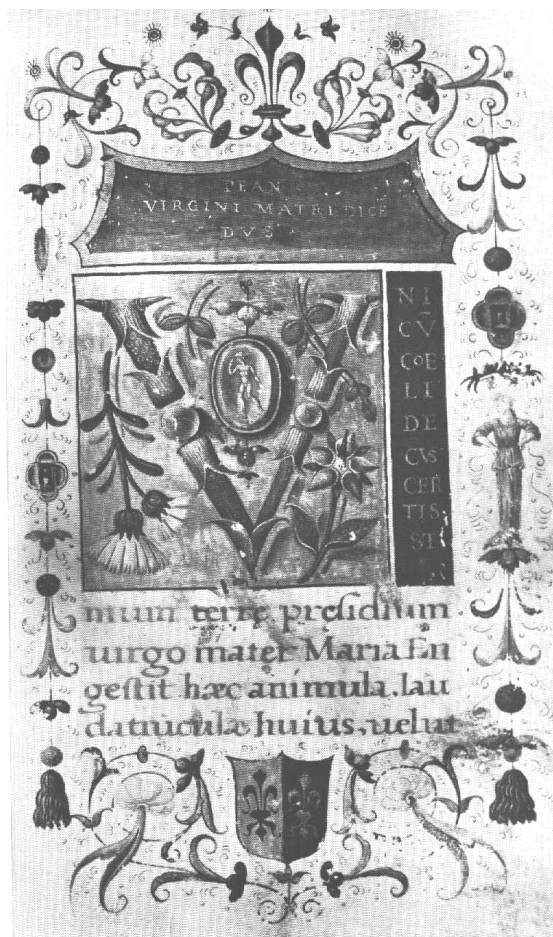 PEAN
VIRGINI MATRI DICE
DVS
V
NI
CŪ
COE
LI
DE
CVS
CER
TIS
SI
mum terrę pręsidium
uirgo mater Maria En
gestit hæc animula, lau
datriculæ huius, uelut